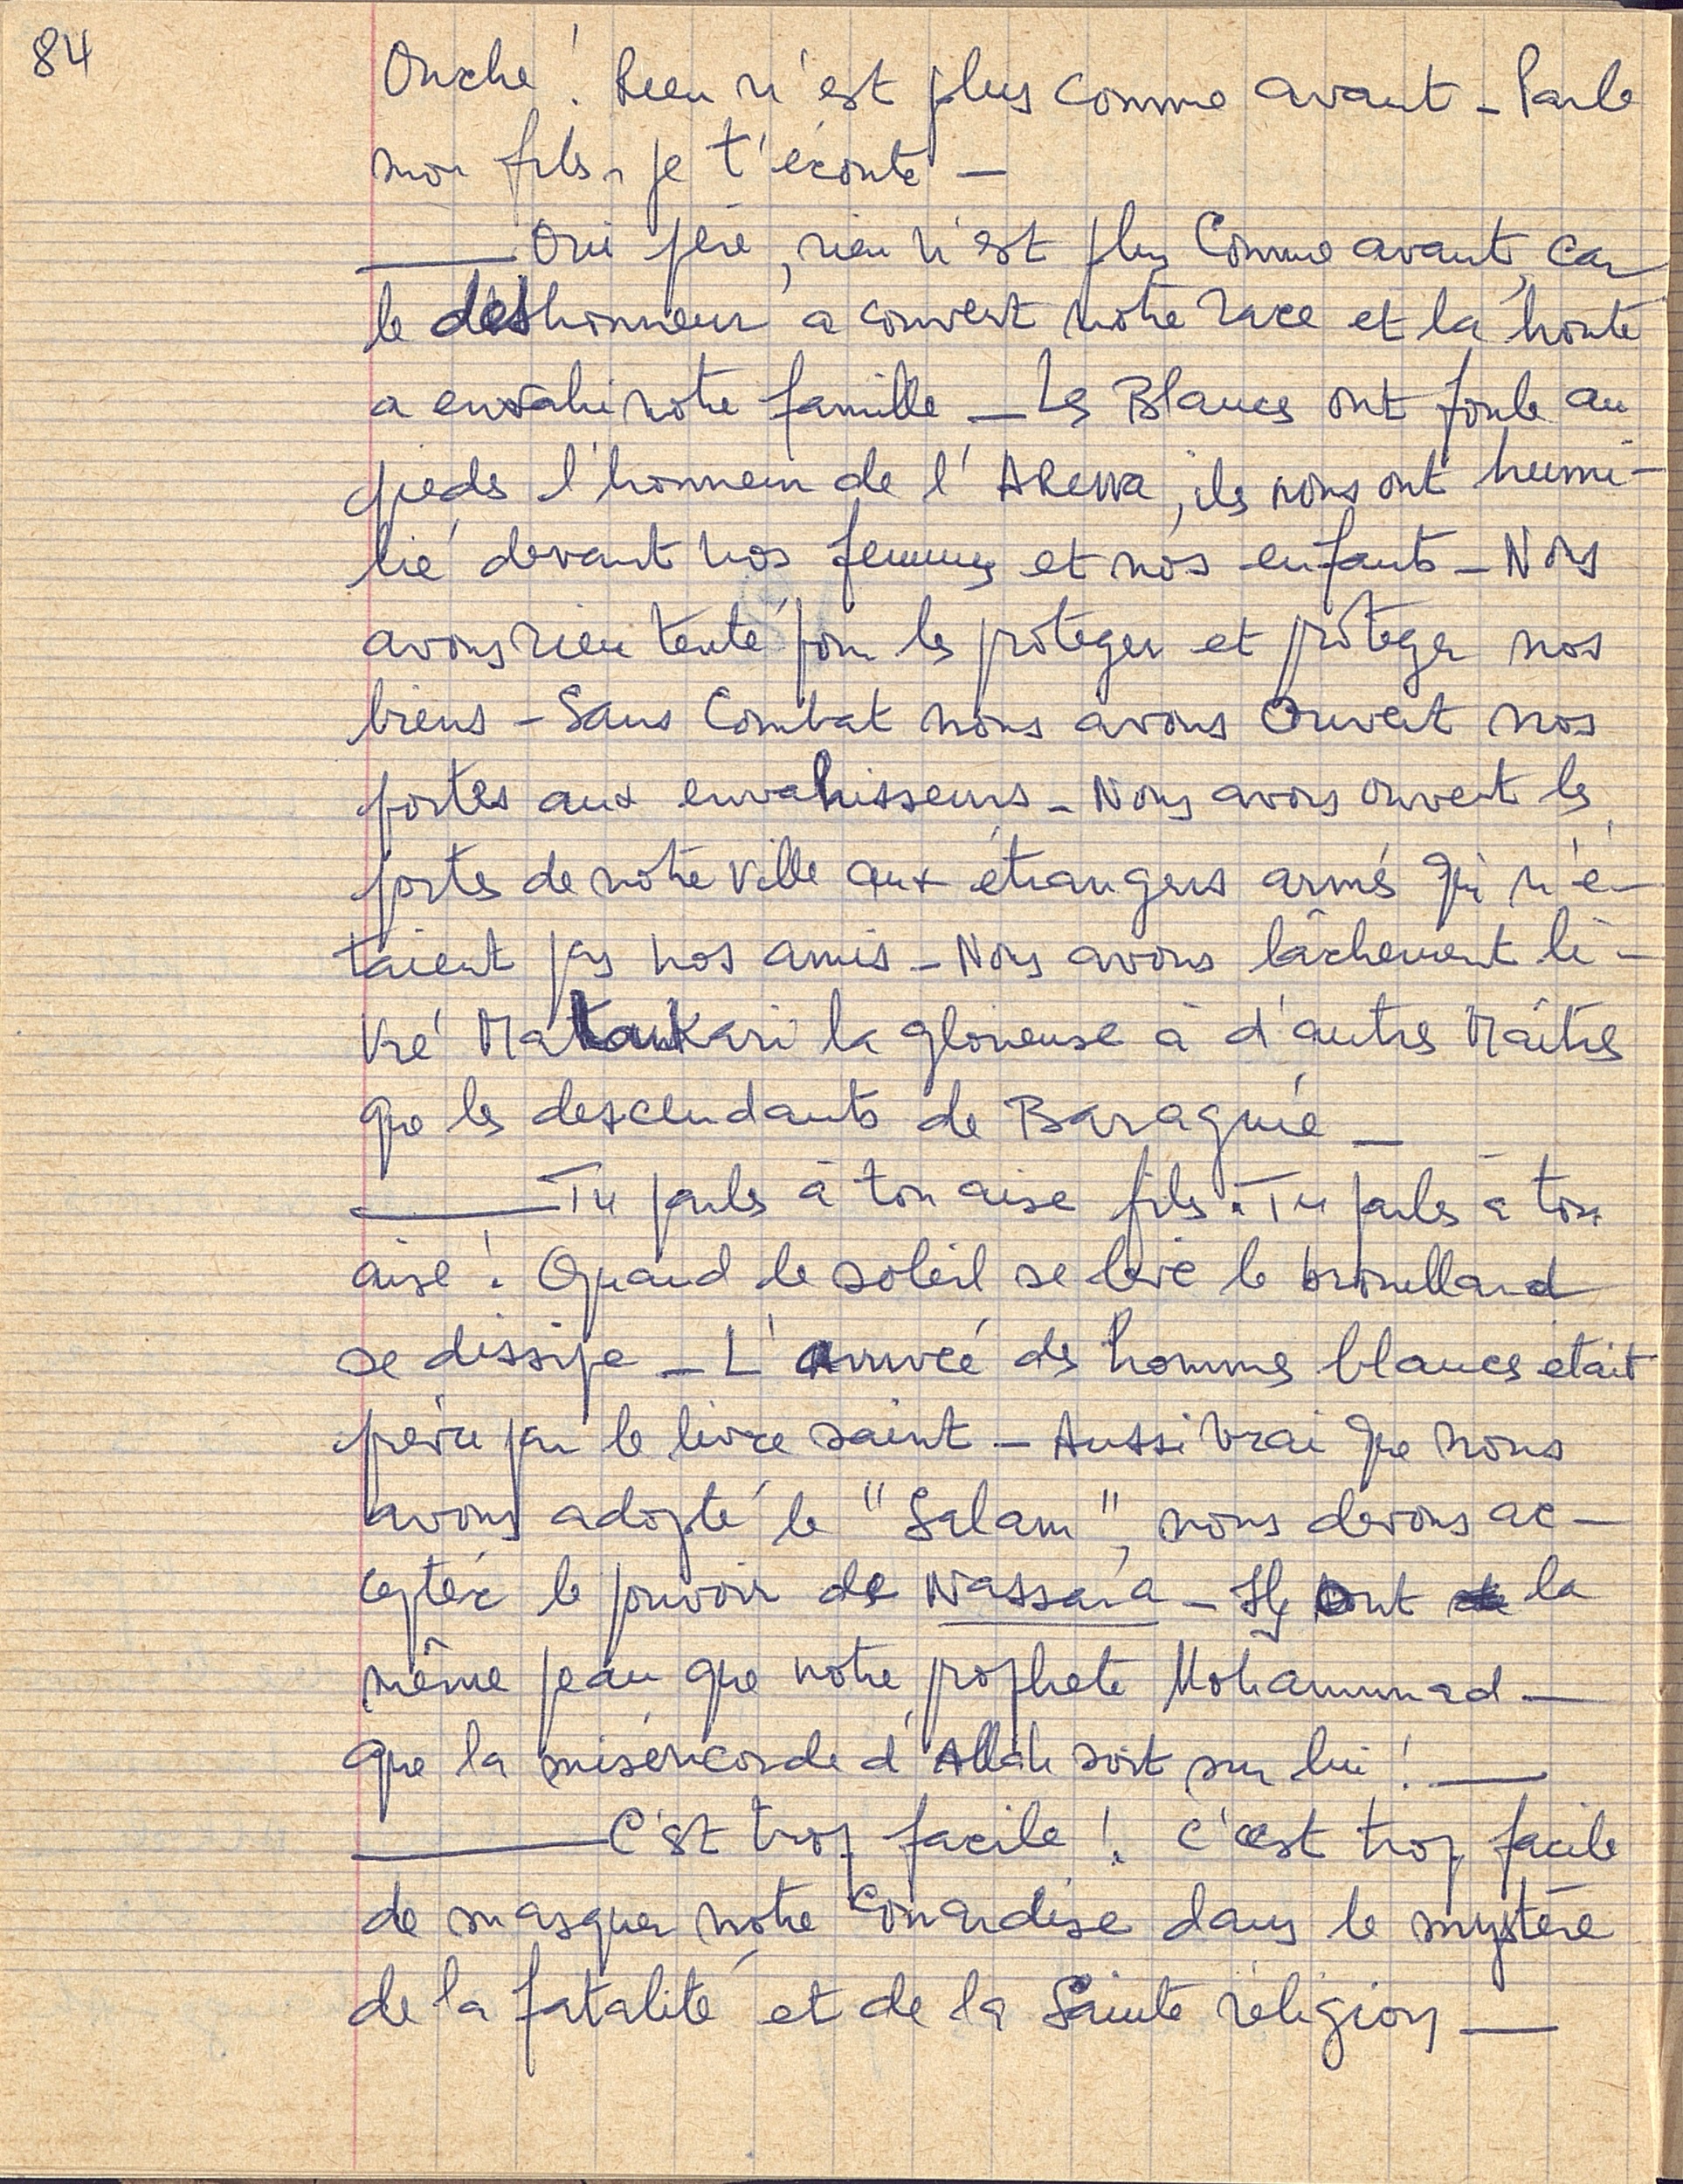 84
Ouche ! Rien n'est plus comme avant - Parle
mon fils, je t'écoute -
— Oui père, rien n'est plus comme avant, car
le deshonneur a couvert notre race et la honte
a envahi notre famille - Les Blancs ont foulé au
pieds l'honneur de l'Arewa, ils nous ont humi-
lié devant nos femmes et nos enfants - Nous
avons rien tenté pour les protéger et protéger nos
biens - Sans Combat nous avons ouvert nos
portes aux envahisseurs - Nous avons ouvert les
portes de notre ville aux étrangers armés qui n'é-
taient pas nos amis - Nous avons lâchement li-
vré Matankari la glorieuse à d'autres Maîtres
que les descendants de Baragué -
— Tu parles à ton aise fils. Tu parles à ton
aise ! Quand le soleil se lève le brouillard
se dissipe - L'arrivée des hommes blancs était
prévu par le livre saint - Aussi vrai que nous
avons adopté le "Salam", nous devons ac-
cepter le pouvoir de Nassara - Ils ont la
même peau que notre prophète Mohammad -
que la miséricorde d'Allah soit sur lui ! —
— C'est trop facile ! C'est trop facile
de masquer notre Couardise dans le mystère
de la fatalité et de la Sainte religion —